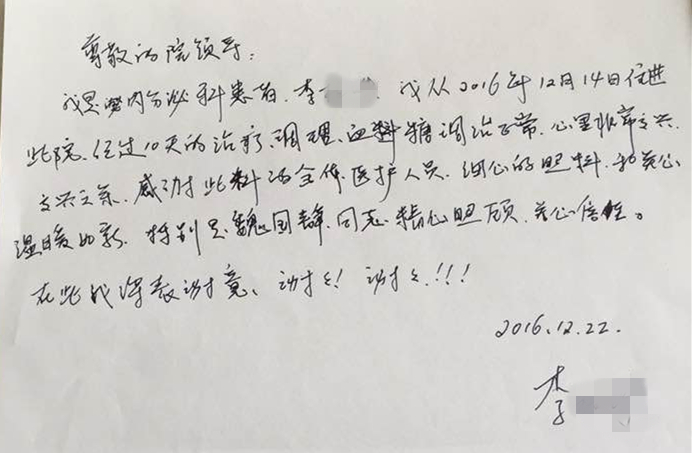 尊敬的院领导:
我是内分泌科患者,李 我从2016年12月14日住进
此院,经过10天的治疗,调理,血糖调治正常,心里非常高兴
高兴之余,感谢此科的全体医护人员,细心的照料,和关心
温暖如新,特别是魏国 同志精心照顾,关心倍
在此我深表谢意、谢谢!谢谢!!!
2016.12.22.
李